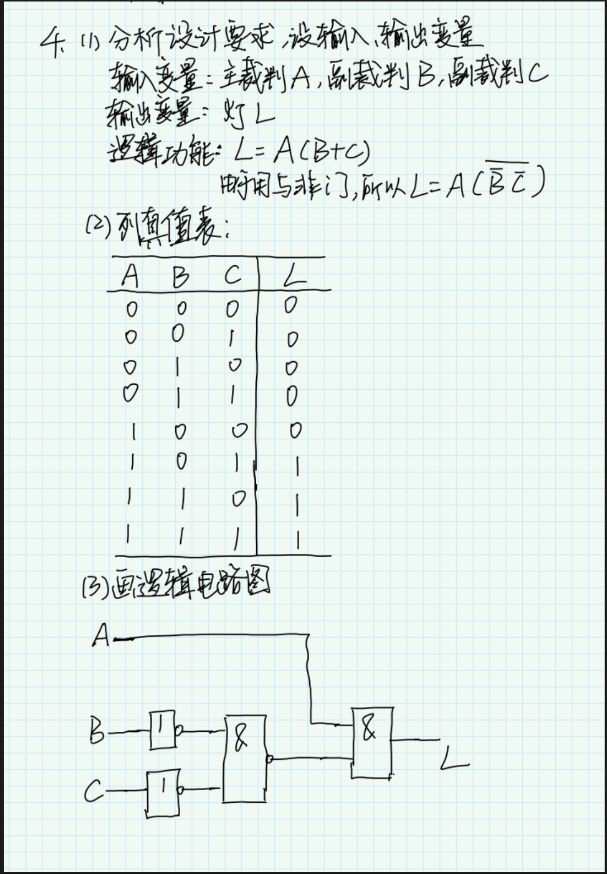 4. (1) 分析设计要求,设输入、输出变量
输入变量:主裁判A,副裁判B,副裁判C
输出变量:灯L
逻辑功能:L=A(B+C)
由于用与非门,所以L=A(\overline{\overline{B}\,\overline{C}})
(2)列真值表:
A B C L
0 0 0 0
0 0 1 0
0 1 0 0
0 1 1 0
1 0 0 0
1 0 1 1
1 1 0 1
1 1 1 1
(3)画逻辑电路图
A
B 1 & &
L
C 1